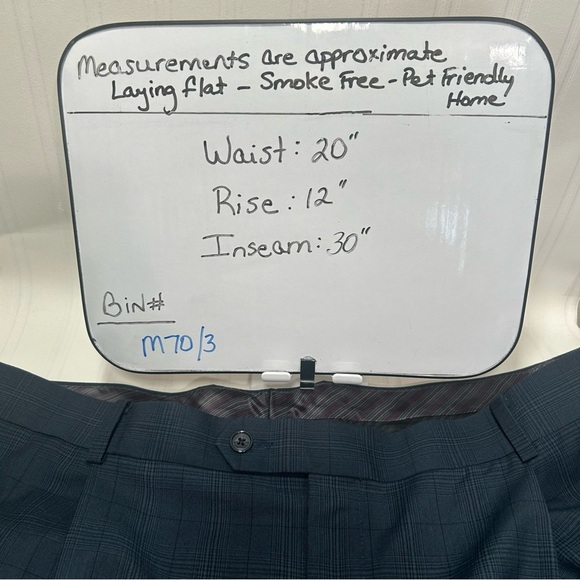 Measurements are approximate
Laying flat - Smoke Free - Pet Friendly
Home
Waist: 20"
Rise: 12"
Inseam: 30"
BiN#
M70/3